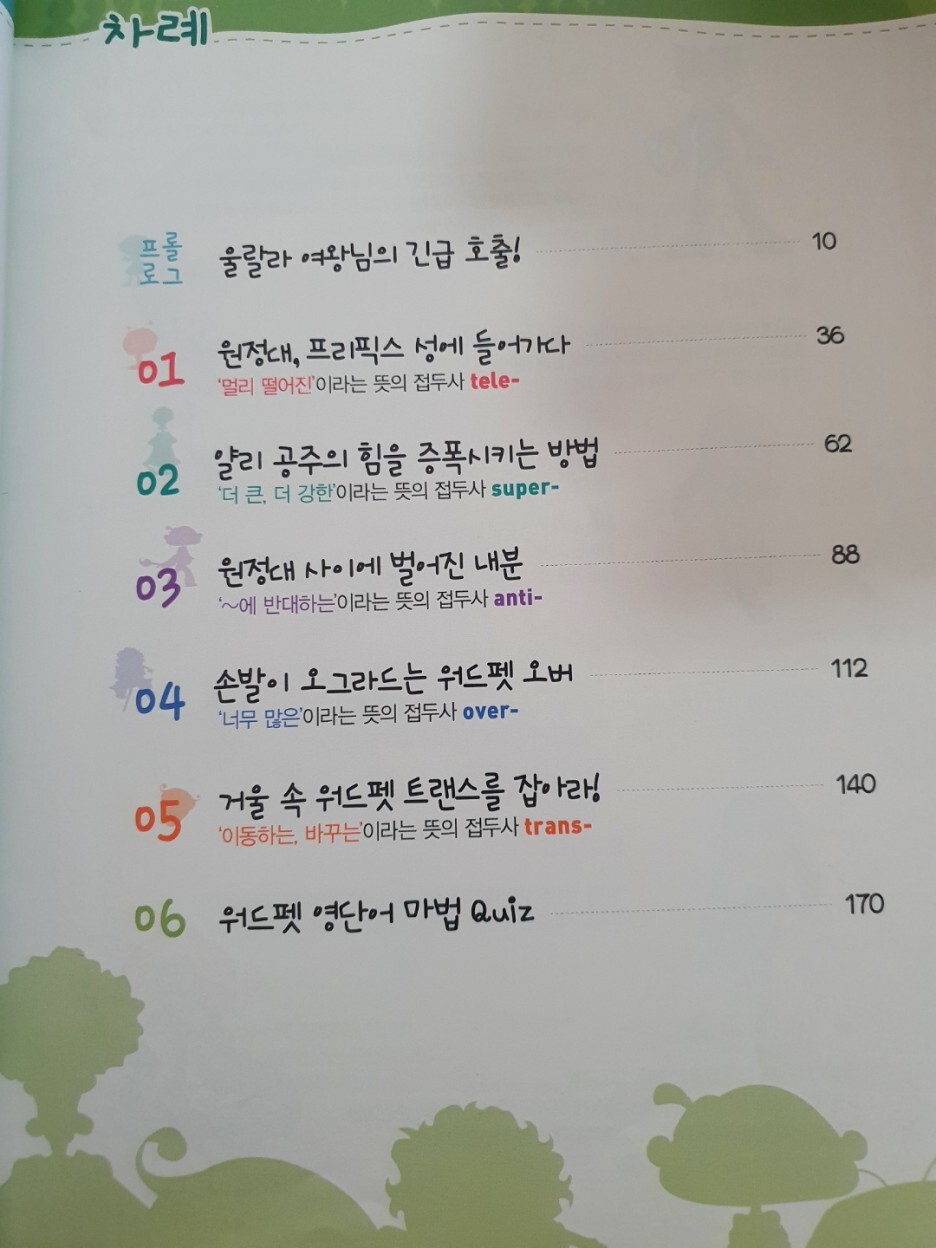 차례
프롤
로그
울랄라 여왕님의 긴급 호출! 10
01 원정대, 프리픽스 성에 들어가다 36
'멀리 떨어진'이라는 뜻의 접두사 tele-
02 얄리 공주의 힘을 증폭시키는 방법 62
'더 큰, 더 강한'이라는 뜻의 접두사 super-
03 원정대 사이에 벌어진 내분 88
'~에 반대하는'이라는 뜻의 접두사 anti-
04 손발이 오그라드는 워드펫 오버 112
'너무 많은'이라는 뜻의 접두사 over-
05 거울 속 워드펫 트랜스를 잡아라! 140
'이동하는, 바꾸는'이라는 뜻의 접두사 trans-
06 워드펫 영단어 마법 Quiz 170